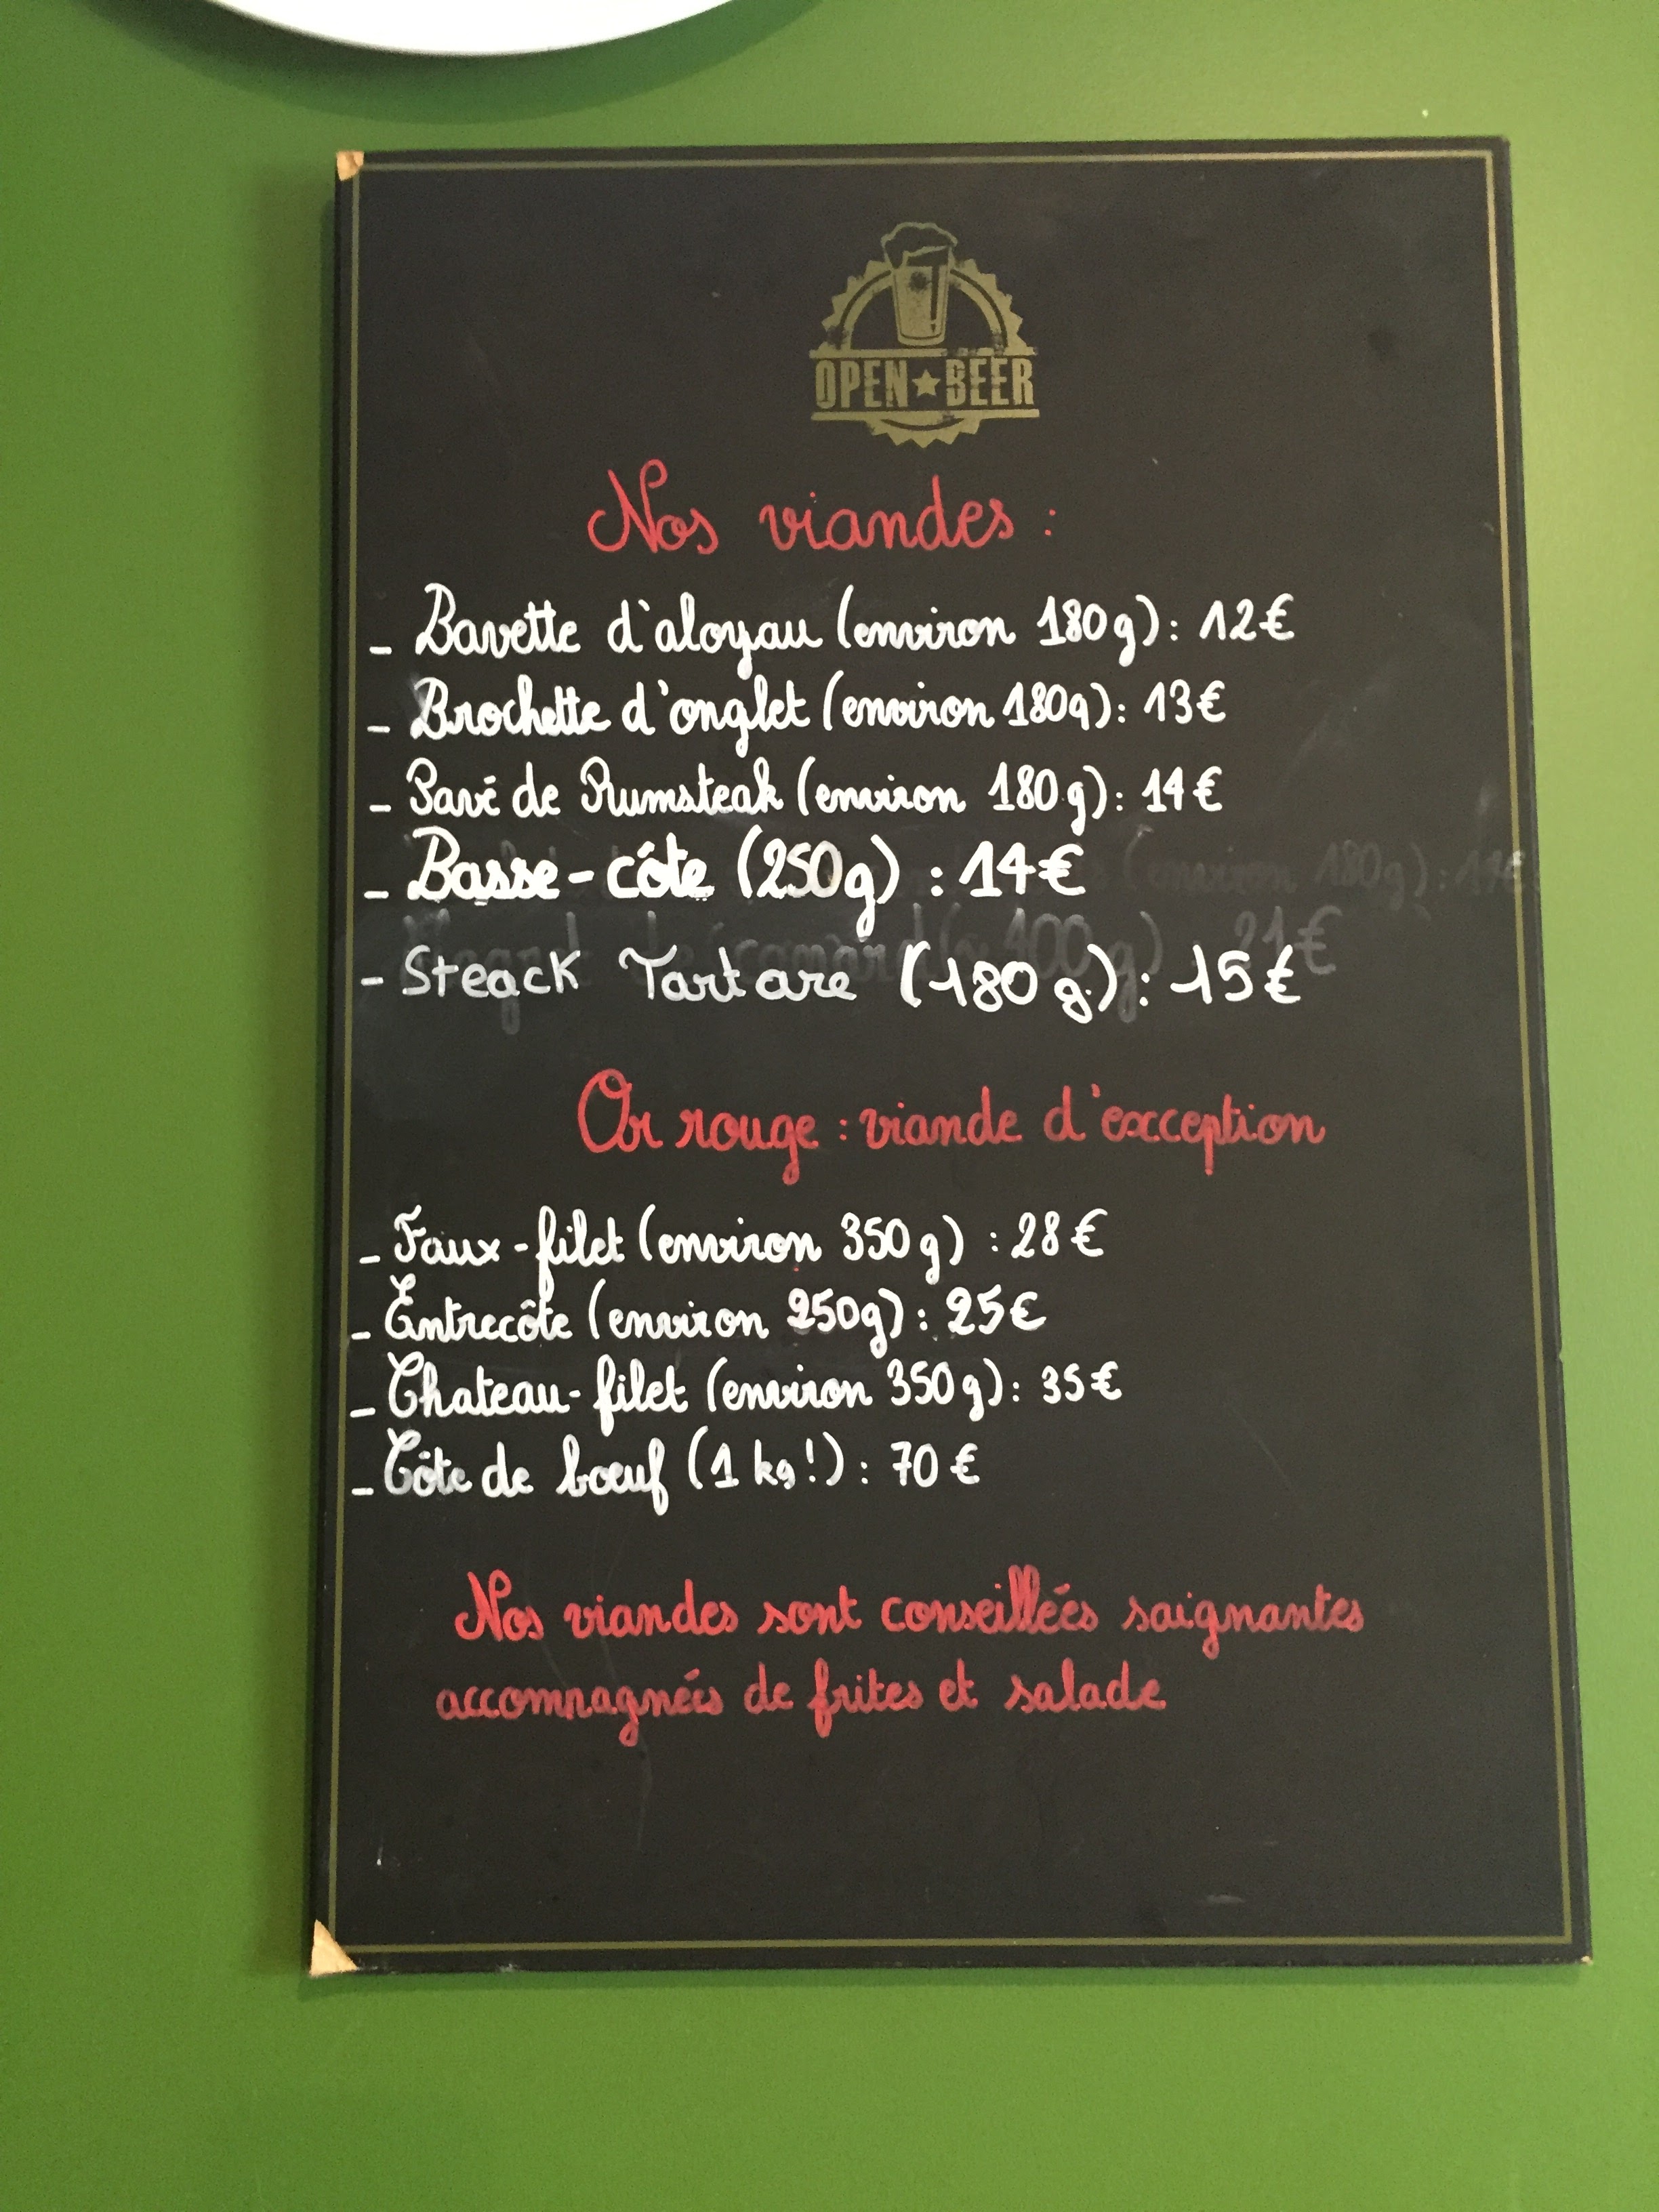 OPEN★BEER
Nos viandes :
- Bavette d'aloyau (environ 180g): 12€
- Brochette d'onglet (environ 180g): 13€
- Pavé de Rumsteak (environ 180g): 14€
- Basse-côte (250g) : 14€
- Steack Tartare (180g.): 15€
Or rouge : viande d'exception
- Faux-filet (environ 350g) : 28€
- Entrecôte (environ 250g) : 25€
- Chateau-filet (environ 350g): 35€
- Côte de bœuf (1 kg!) : 70€
Nos viandes sont conseillées saignantes
accompagnées de frites et salade